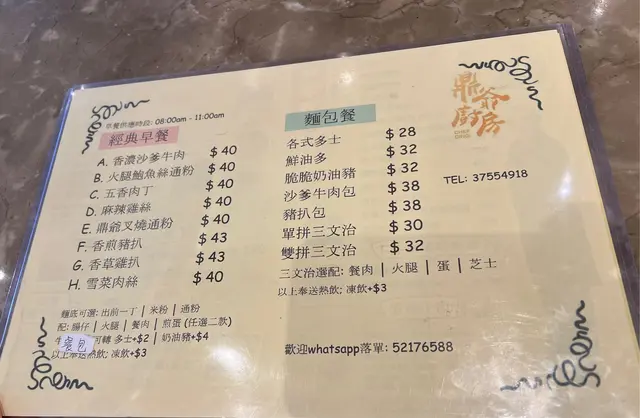 早餐供應時段: 08:00am - 11:00am
經典早餐
A. 香濃沙爹牛肉 $ 40
B. 火腿鮑魚絲通粉 $ 40
C. 五香肉丁 $ 40
D. 麻辣雞絲 $ 40
E. 鼎爺叉燒通粉 $ 40
F. 香煎豬扒 $ 43
G. 香草雞扒 $ 43
H. 雪菜肉絲 $ 40
麵底可選: 出前一丁 | 米粉 | 通粉
配: 腸仔 | 火腿 | 餐肉 | 煎蛋 (任選二款)
牛 餐包 可轉 多士+$2 | 奶油豬+$4
以上奉送熱飲; 凍飲+$3
麵包餐
各式多士 $ 28
鮮油多 $ 32
脆脆奶油豬 $ 32
沙爹牛肉包 $ 38
豬扒包 $ 38
單拼三文治 $ 30
雙拼三文治 $ 32
三文治選配: 餐肉 | 火腿 | 蛋 | 芝士
以上奉送熱飲; 凍飲+$3
歡迎whatsapp落單: 52176588
鼎爺廚房
TEL: 37554918